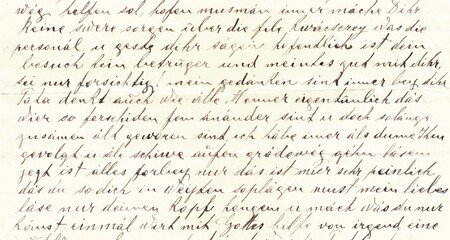 weg helfen sol, hofen musman imer mache Dihr
keine swere sorgen über die file was die
personal u gesde dihr sagen hofentlich ist dein
besuch kein betrüger und meint es gut mit dihr,
sei nur forsichtig! mein gedanken sind imer bey dihr
Tata denkt auch wie alle, Komer eigentümlich das
wier so ferschiden fom anander sind u doch solange
zusamen alt geworen sind, ich habe imer als dume
gevolgt u als schwe aufen gradeweg gehn lasen
jezt ist alles forbey nur das ist mier sehr peinlich
das du so dich in must mein liebes
lase nur deinen Kopf hengen u mach was du nur
kanst einmal wird mit Gottes helfe von irgend eine